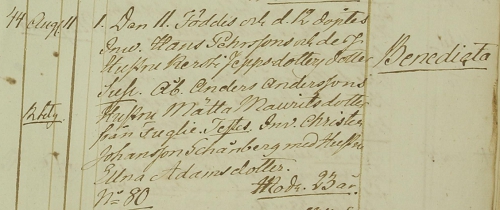 44 Aug. 11 1. Den 11. Föddes och d. 12 döptes
Inw. Hans Pehrssons och de ß
Hustru Kersti Jeppsdotters dotter Benedicta
Susc. Åb. Anders Anderssons
Hustru Mätta Mauritsdotter
från Fuglie. Testes. Inw. Christen
Johansson Schånberg med Hustru
Ellna Adamsdotter.
No 80 Modr. 23 år.